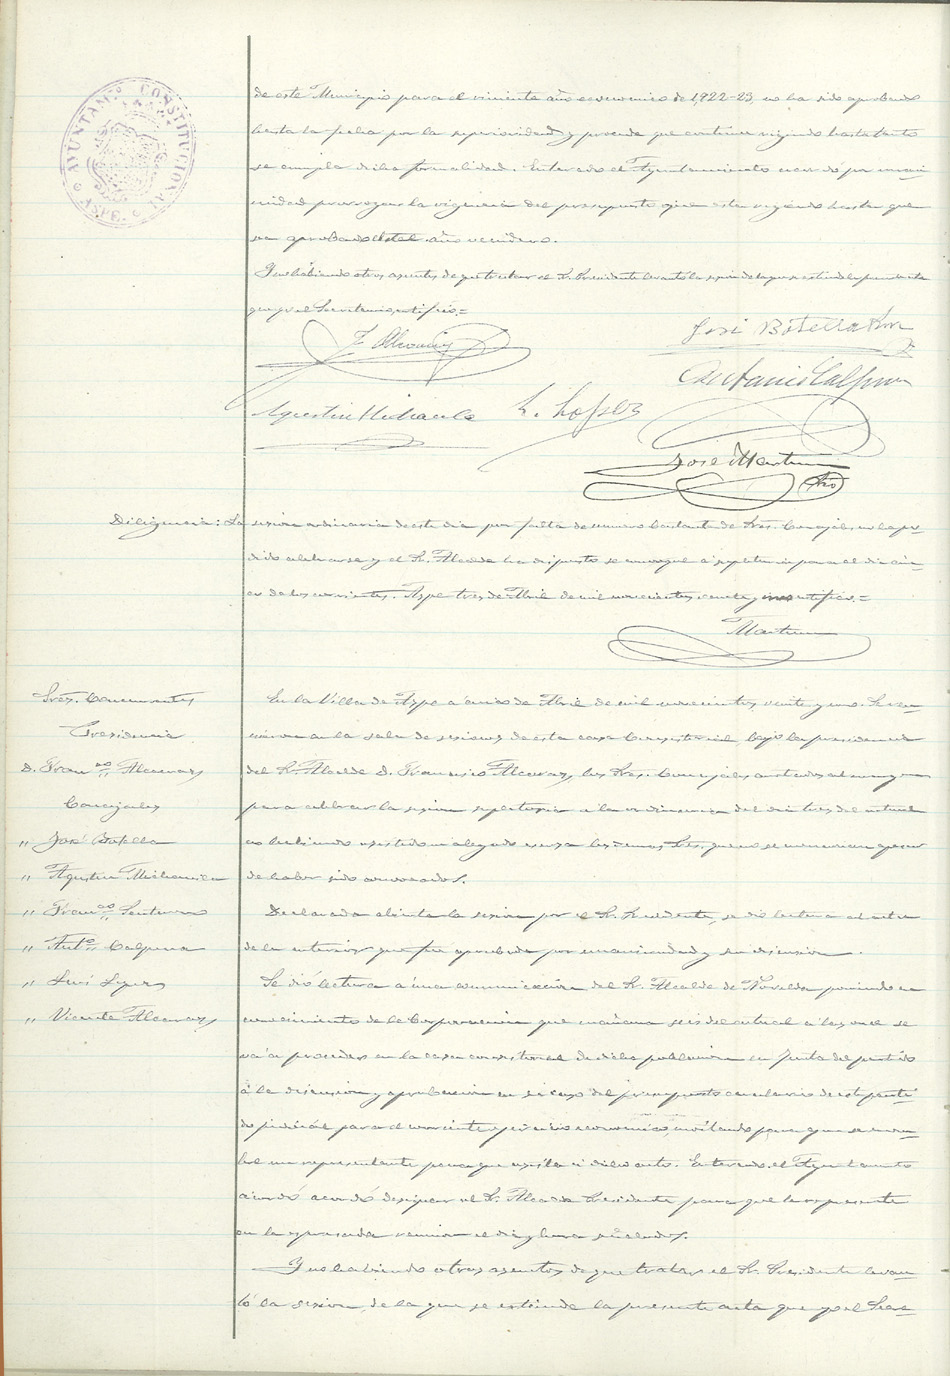 AYUNTAM.º CONSTITUCIONAL
ASPE.
de este Municipio para el viniente año economico de 1922-23, no ha sido aprobado
hasta la fecha por la superioridad y procede que continue rigiendo hasta tanto
se cumpla dicha formalidad. Enterado el Ayuntamiento acordó por unani-
midad prorrogar la vigencia del presupuesto que está rigiendo hasta que
sea aprobado el del año venidero.
Y no habiendo otros asuntos de que tratar el Sr. Presidente levantó la sesión de la que se extiende la presente acta
que yo el Secretario certifico.=
José Botella
Antonio Calpena
L. Lopez
José Martinez
Diligencia: La sesión ordinaria de este dia por falta de numero bastante de Sres. Concejales, no ha po-
dido celebrarse y el Sr. Alcalde ha dispuesto se convoque á supletoria para el dia cin-
co de los corrientes. Aspe tres de Abril de mil novecientos certifico.=
Martinez
Sres. Concurrentes
Presidencia
D. Franco. Alcaraz
Concejales
" José Botella
" Agustin
" Franco.
" Anto. Calpena
" Luis Lopez
" Vicente Alcaraz
En la Villa de Aspe a cinco de Abril de mil novecientos veinte y uno. Se reu-
nieron en la sala de sesiones de esta casa Consistorial, bajo la presidencia
del Sr. Alcalde D. Francisco Alcaraz, los Sres. Concejales anotados al margen
para celebrar la sesion supletoria a la ordinaria del dia tres del actual
no habiendo asistido ni alegado excusa los demas Sres. que no se mencionan apesar
de haber sido convocados.
Declarada abierta la sesion por el Sr. Presidente, se dió lectura al acta
de la anterior que fué aprobada por unanimidad y sin discusion.
Se dió lectura á una comunicación del Sr. Alcalde de Novelda poniendo en
conocimiento de la Corporacion que mañana seis del actual a las once se
vá a proceder en la casa consistorial de dicha poblacion en Junta del partido
á la discusion y aprobacion en su caso del presupuesto carcelario de este parti-
do judicial para el corriente ejercicio economico, invitando para que se nom-
bre un representante para que asista a dicho acto. Enterado el Ayuntamiento
acordó acordó designar al Sr. Alcalde Presidente para que le represente
en la expresada reunion el dia y hora señalados.
Y no habiendo otros asuntos de que tratar el Sr. Presidente levan-
tó la sesion, de la que se extiende la presente acta que yo el Secre-